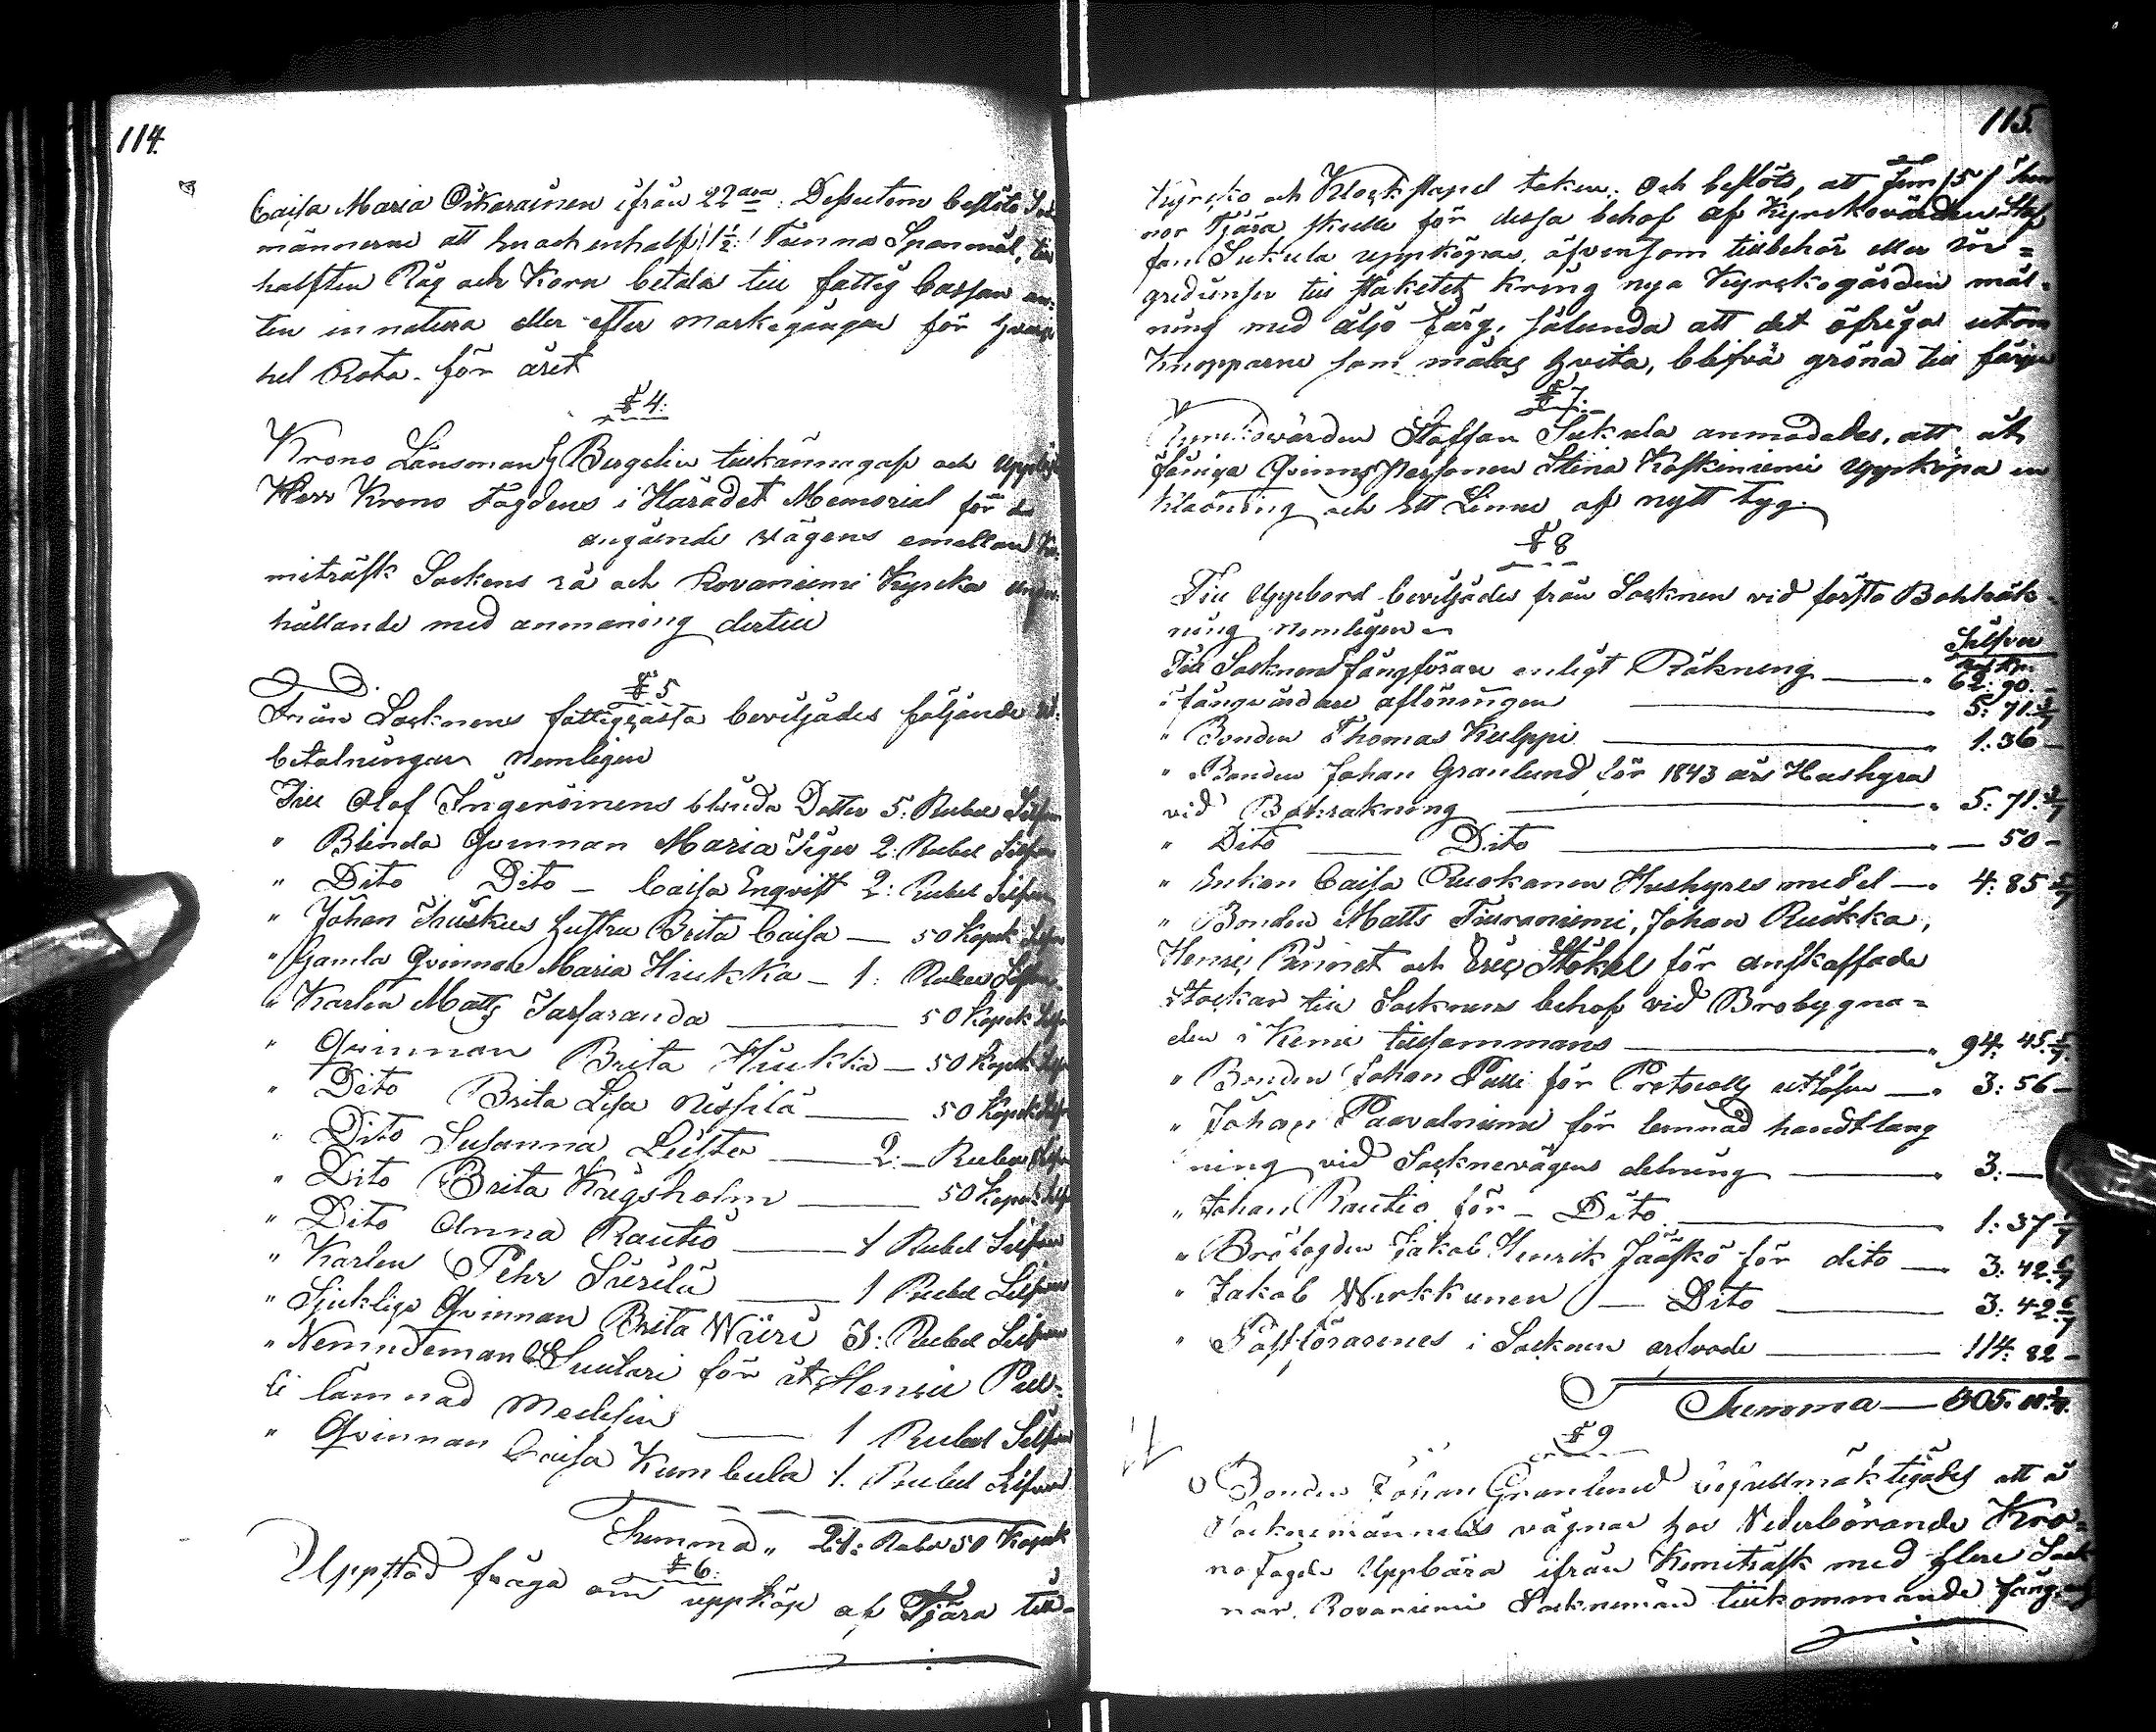 114.
Caisa Maria Oikarainen ifrån 22dra. Dessutom beslöto Sock
männerne att en och en half /:1½:/ Tunna Spanmål, till
hälften Råg och Korn betala till fattig Cassan an-
ten in natura eller efter markegången för hvarje
hel Rota för året
§ 4:
Krono Länsman Bergelin tillkännagaf och uppläste
Herr Krono Fogdens i Häradet Memorial för den
angående vägens emellan Ke-
miträsk Sockens rå och Rovaniemi Kyrcka under-
hållande med anmaning dertill
§ 5
Från Socknens fattigcassa beviljades följande ut-
betalningar nemligen
Till Olof Ingeröinens blinda Dotter 5: Rubel Silfver
" Blinda Qvinnan Maria Tiger 2: Rubel Silfver
" Dito Dito – Caisa Enqvist 2: Rubel Silfver
" Johan Huskus hustru Brita Caisa — 50 Kopek Silfver
" Gamla Qvinnan Maria Hiukka – 1: Rubel Silfver
" Karlen Matts Sarfaranda — 50 Kopek Silfver
" Qvinnan Brita Hiukka — 50 Kopek Silfver
" Dito Brita Lisa Nissilä — 50 Kopek Silfver
" Dito Susanna Leista — 2: – Rubel Silfver
" Dito Brita Krigsholm — 50 Kopek Silfver
" Dito Anna Rautio — 1 Rubel Silfver
" Karlen Pehr Sierilä — 1 Rubel Silfver
" Sjukliga Qvinnan Brita Wiiri 3: Rubel Silfver
" Nemndeman Suutari för åt Henric Pul-
li lämnad Medesin — 1 Rubel Silfver
" Qvinnan Caisa Kumbula 1. Rubel Silfver
Summa " 21: Rubel 50 Kopek
§ 6:
Uppstod fråga om uppköp af Tjära till
115.
Kyrcko och Klockstapel taken. Och beslöts, att fem /5/ Tun
nor Tjära skulle för dessa behof af Kyrckovärden Staf
fan Sukula uppköpas, äfvensom tillbehör eller in-
gredienser till staketets kring nya Kyrckogården mål-
ning med oljo färg, sålunda att det öfriga utom
Knopparne som målas hvita, blifva gröna till färgen
§ 7.
Kyrckovärden Staffan Sukula anmodades, att åt
fåniga Qvinns Personen Stina Koskiniemi uppköpa en
Klädning och ett Linne af nytt tyg.
§ 8
Till Uppbord beviljades från Socknen vid första Bohkräk-
ning nemligen
Silfver
Rub. Kp.
Till Socknens fångförare enligt Räkning — " 62: 90. –
" fångvårdare aflöningen — 5: 71 3/7
" Bonden Thomas Kulppi — " 1: 36 –
" Bonden Johan Granlund för 1843 års Hushyra
vid Bokräkning — " 5: 71. 3/7
" Dito — Dito — " — 50 –
" Enkan Caisa Ruokanen Hushyres medel — " 4: 85 5/7
" Bonden Matts Tiuraniemi, Johan Ruikka,
Henric och Eric Stökel för anskaffade
Stockar till Socknens behof vid Brobygna-
den i Kemi tillsammans — " 94: 45. 5/7.
" Bonden Johan Pulli för Protocolls utlösen — " 3: 56 –
" Johan Paavalniemi för lemnad handtlang
ning vid Socknevägens delning — " 3: —
" Johan Rautio för – Dito — 1: 37 1/7
" Brofogden Jakob Henrik Jaasko för dito — 3: 42. 6/7
" Jakob Wirkkunen — Dito — 3: 42 6/7
" Postförarenes i Socknen arfvode — 114: 82 –
Summa — 305.
§ 9
Bonden Johan Granlund befullmäktigades att å
Socknemännens vägnar hos Vederbörande Kro-
nofogde Uppbära ifrån Kemiträsk med flere Sock
nar, Rovaniemi Sockneman tillkommande fång